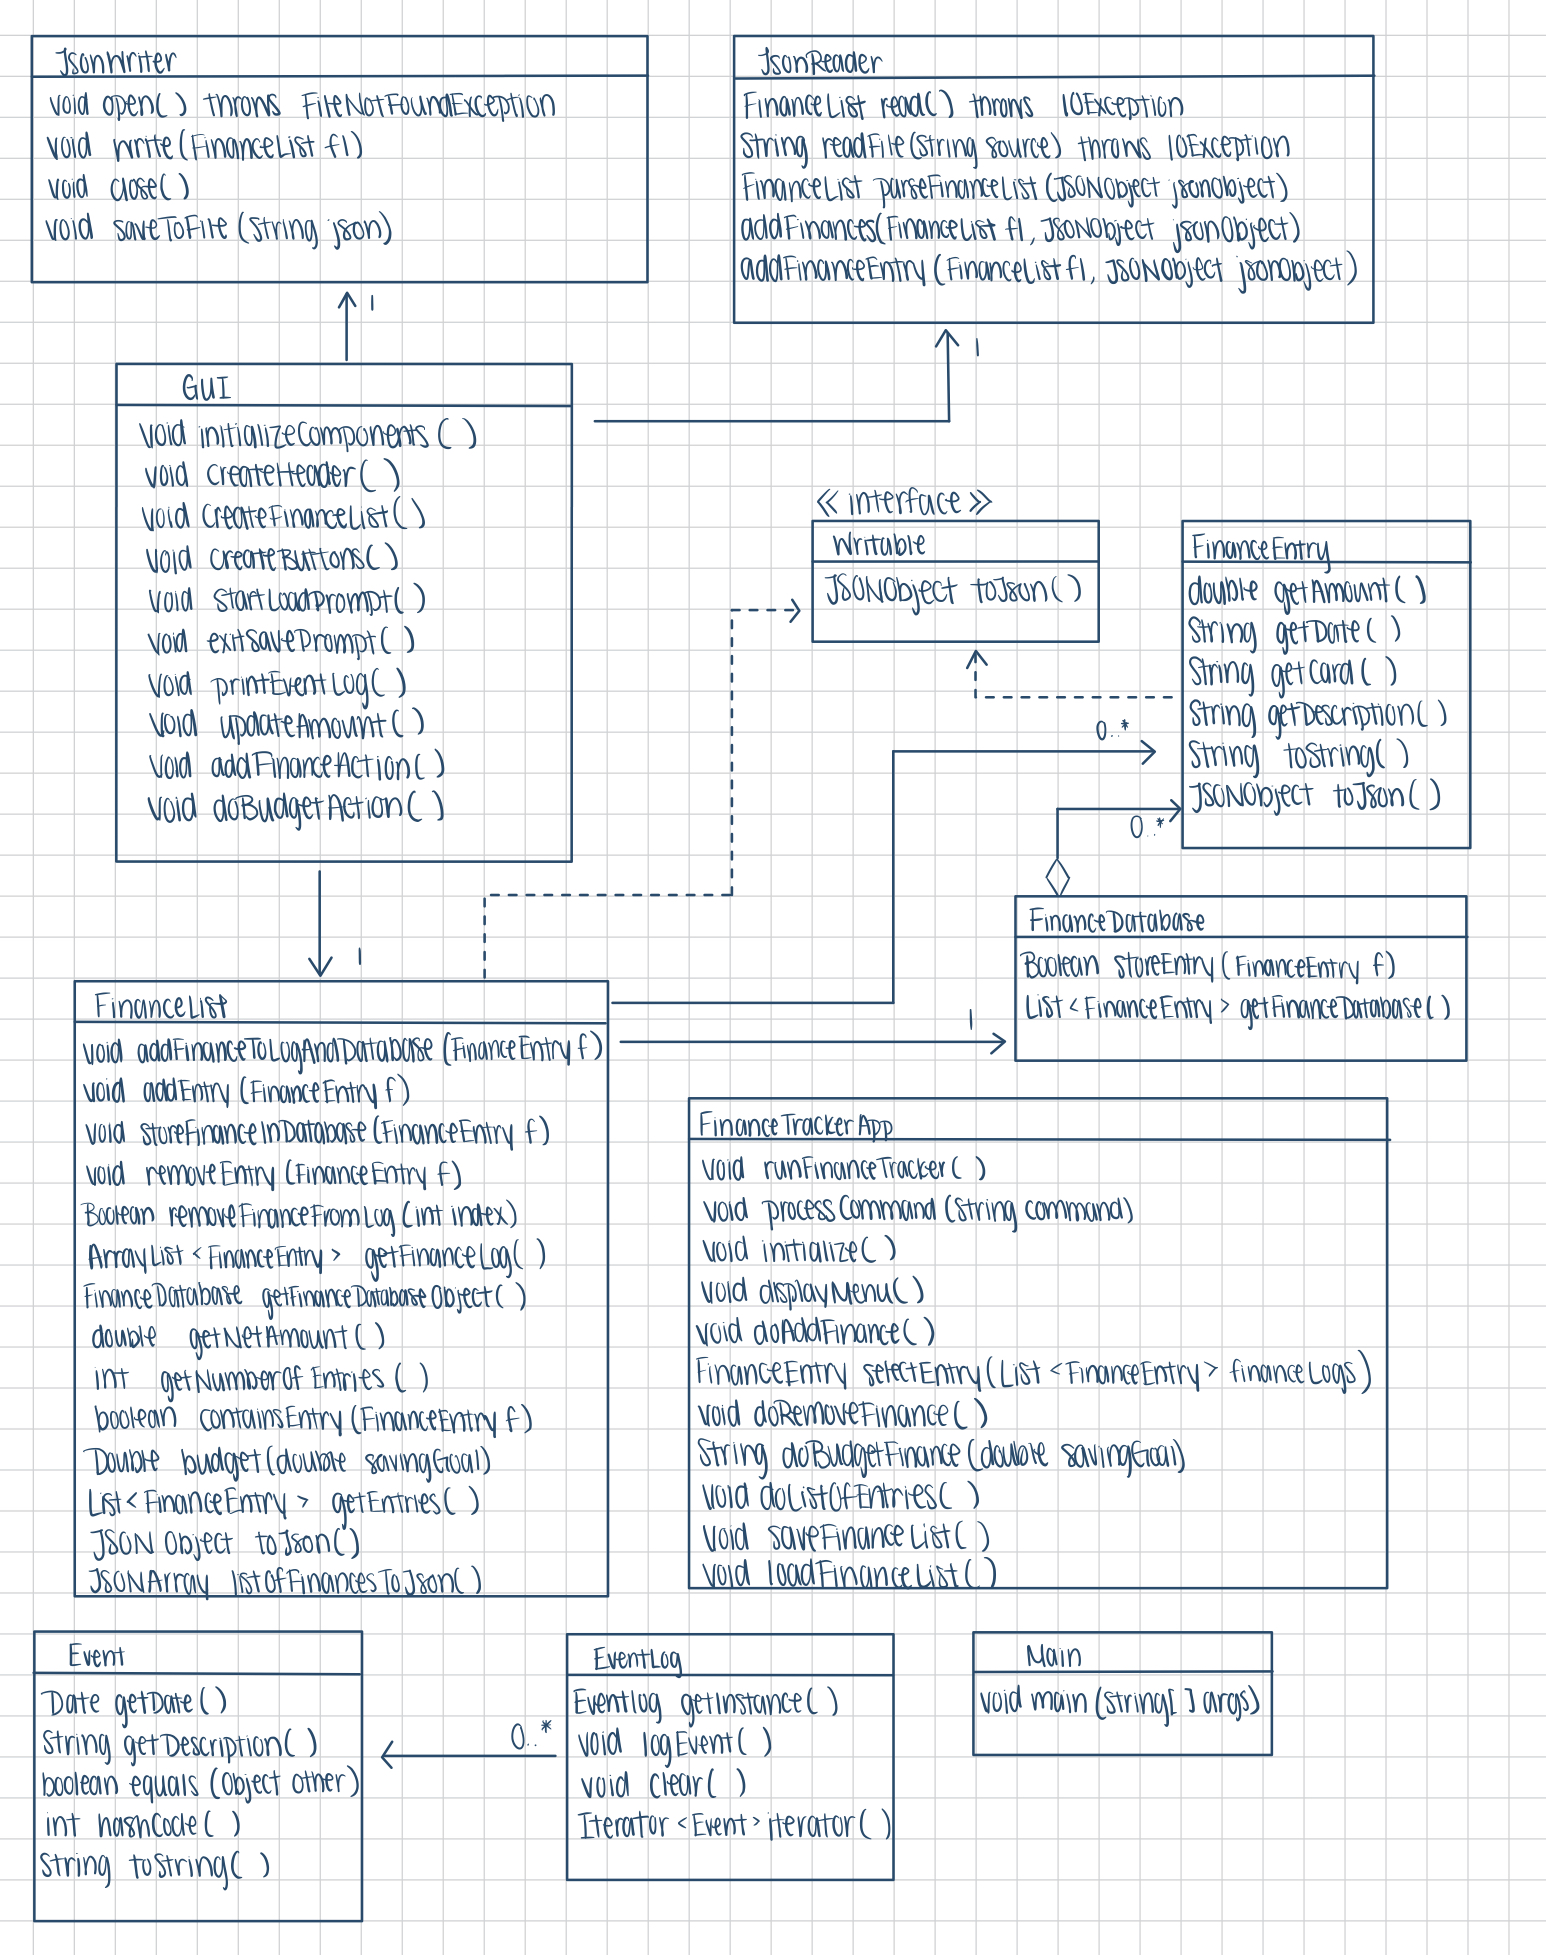 JsonWriter
void open( ) throws FileNotFoundException
void write(FinanceList fl)
void close( )
void saveToFile (String json)
JsonReader
FinanceList read( ) throws IOException
String readFile(String source) throws IOException
FinanceList parseFinanceList (JSONObject jsonObject)
addFinances(FinanceList fl, JSONObject jsonObject)
addFinanceEntry (FinanceList fl, JSONObject jsonObject)
1
1
GUI
void initializeComponents ( )
void createHeader( )
void createFinanceList( )
void createButtons( )
void startLoadPrompt( )
void exitSavePrompt( )
void printEventLog( )
void updateAmount( )
void addFinanceAction( )
void doBudgetAction( )
<< interface >>
Writable
JSONObject toJson( )
FinanceEntry
double getAmount( )
String getDate( )
String getCard( )
String getDescription( )
String toString( )
JSONObject toJson( )
0..*
0..*
FinanceDatabase
Boolean storeEntry (FinanceEntry f)
List <FinanceEntry > getFinanceDatabase( )
1
1
FinanceList
void addFinanceToLogAndDatabase (FinanceEntry f)
void addEntry (FinanceEntry f)
void storeFinanceInDatabase (FinanceEntry f)
void removeEntry (FinanceEntry f)
Boolean removeFinanceFromLog (int index)
ArrayList <FinanceEntry > getFinanceLog( )
FinanceDatabase getFinanceDatabaseObject( )
double getNetAmount ( )
int getNumberOf Entries ( )
boolean containsEntry (FinanceEntry f)
Double budget (double savingGoal)
List< FinanceEntry > getEntries ( )
JSON Object toJson( )
JSONArray listOfFinancesToJson( )
FinanceTrackerApp
void runFinanceTracker( )
void processCommand (String command)
void initialize( )
void displayMenu( )
void doAddFinance( )
FinanceEntry selectEntry (List <FinanceEntry> financeLogs)
void doRemoveFinance( )
String doBudgetFinance (double savingGoal)
void doListOfEntries ( )
void saveFinanceList( )
void loadFinanceList( )
Event
Date getDate ( )
String getDescription( )
boolean equals (Object other)
int hashCode ( )
String toString( )
0..*
EventLog
Eventlog getInstance ( )
void logEvent ( )
void clear( )
Iterator <Event> iterator ( )
Main
void main (string[ ] args)